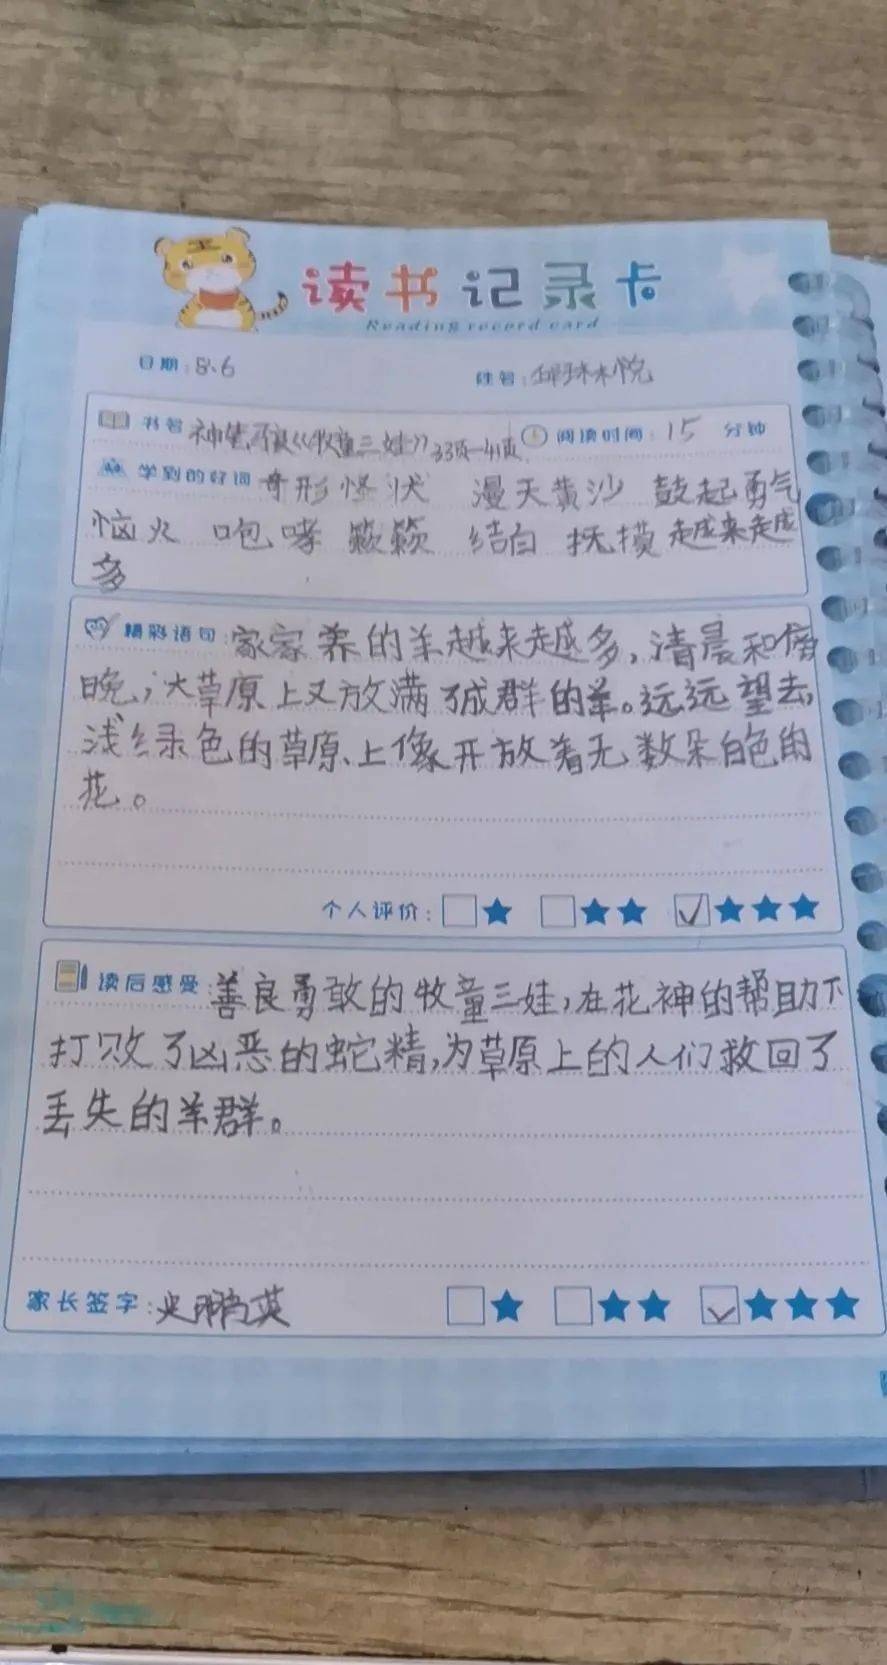 读书记录卡
Reading record card
日期：8.6 姓名：琳悦
书名 神笔马良《牧童三娃》33页—41页 阅读时间：15 分钟
学到的好词 奇形怪状 漫天黄沙 鼓起勇气
恼火 咆哮 簌簌 结白 抚摸 越来越
多
精彩语句：家家养的羊越来越多，清晨和傍
晚，大草原上又放满了成群的羊。远远望去，
浅绿色的草原上像开放着无数朵白色的
花。
个人评价：★ ★★ ✓★★★
读后感受：善良勇敢的牧童三娃，在花神的帮助下
打败了凶恶的蛇精，为草原上的人们救回了
丢失的羊群。
家长签字：鹏英 ★ ★★ ✓★★★